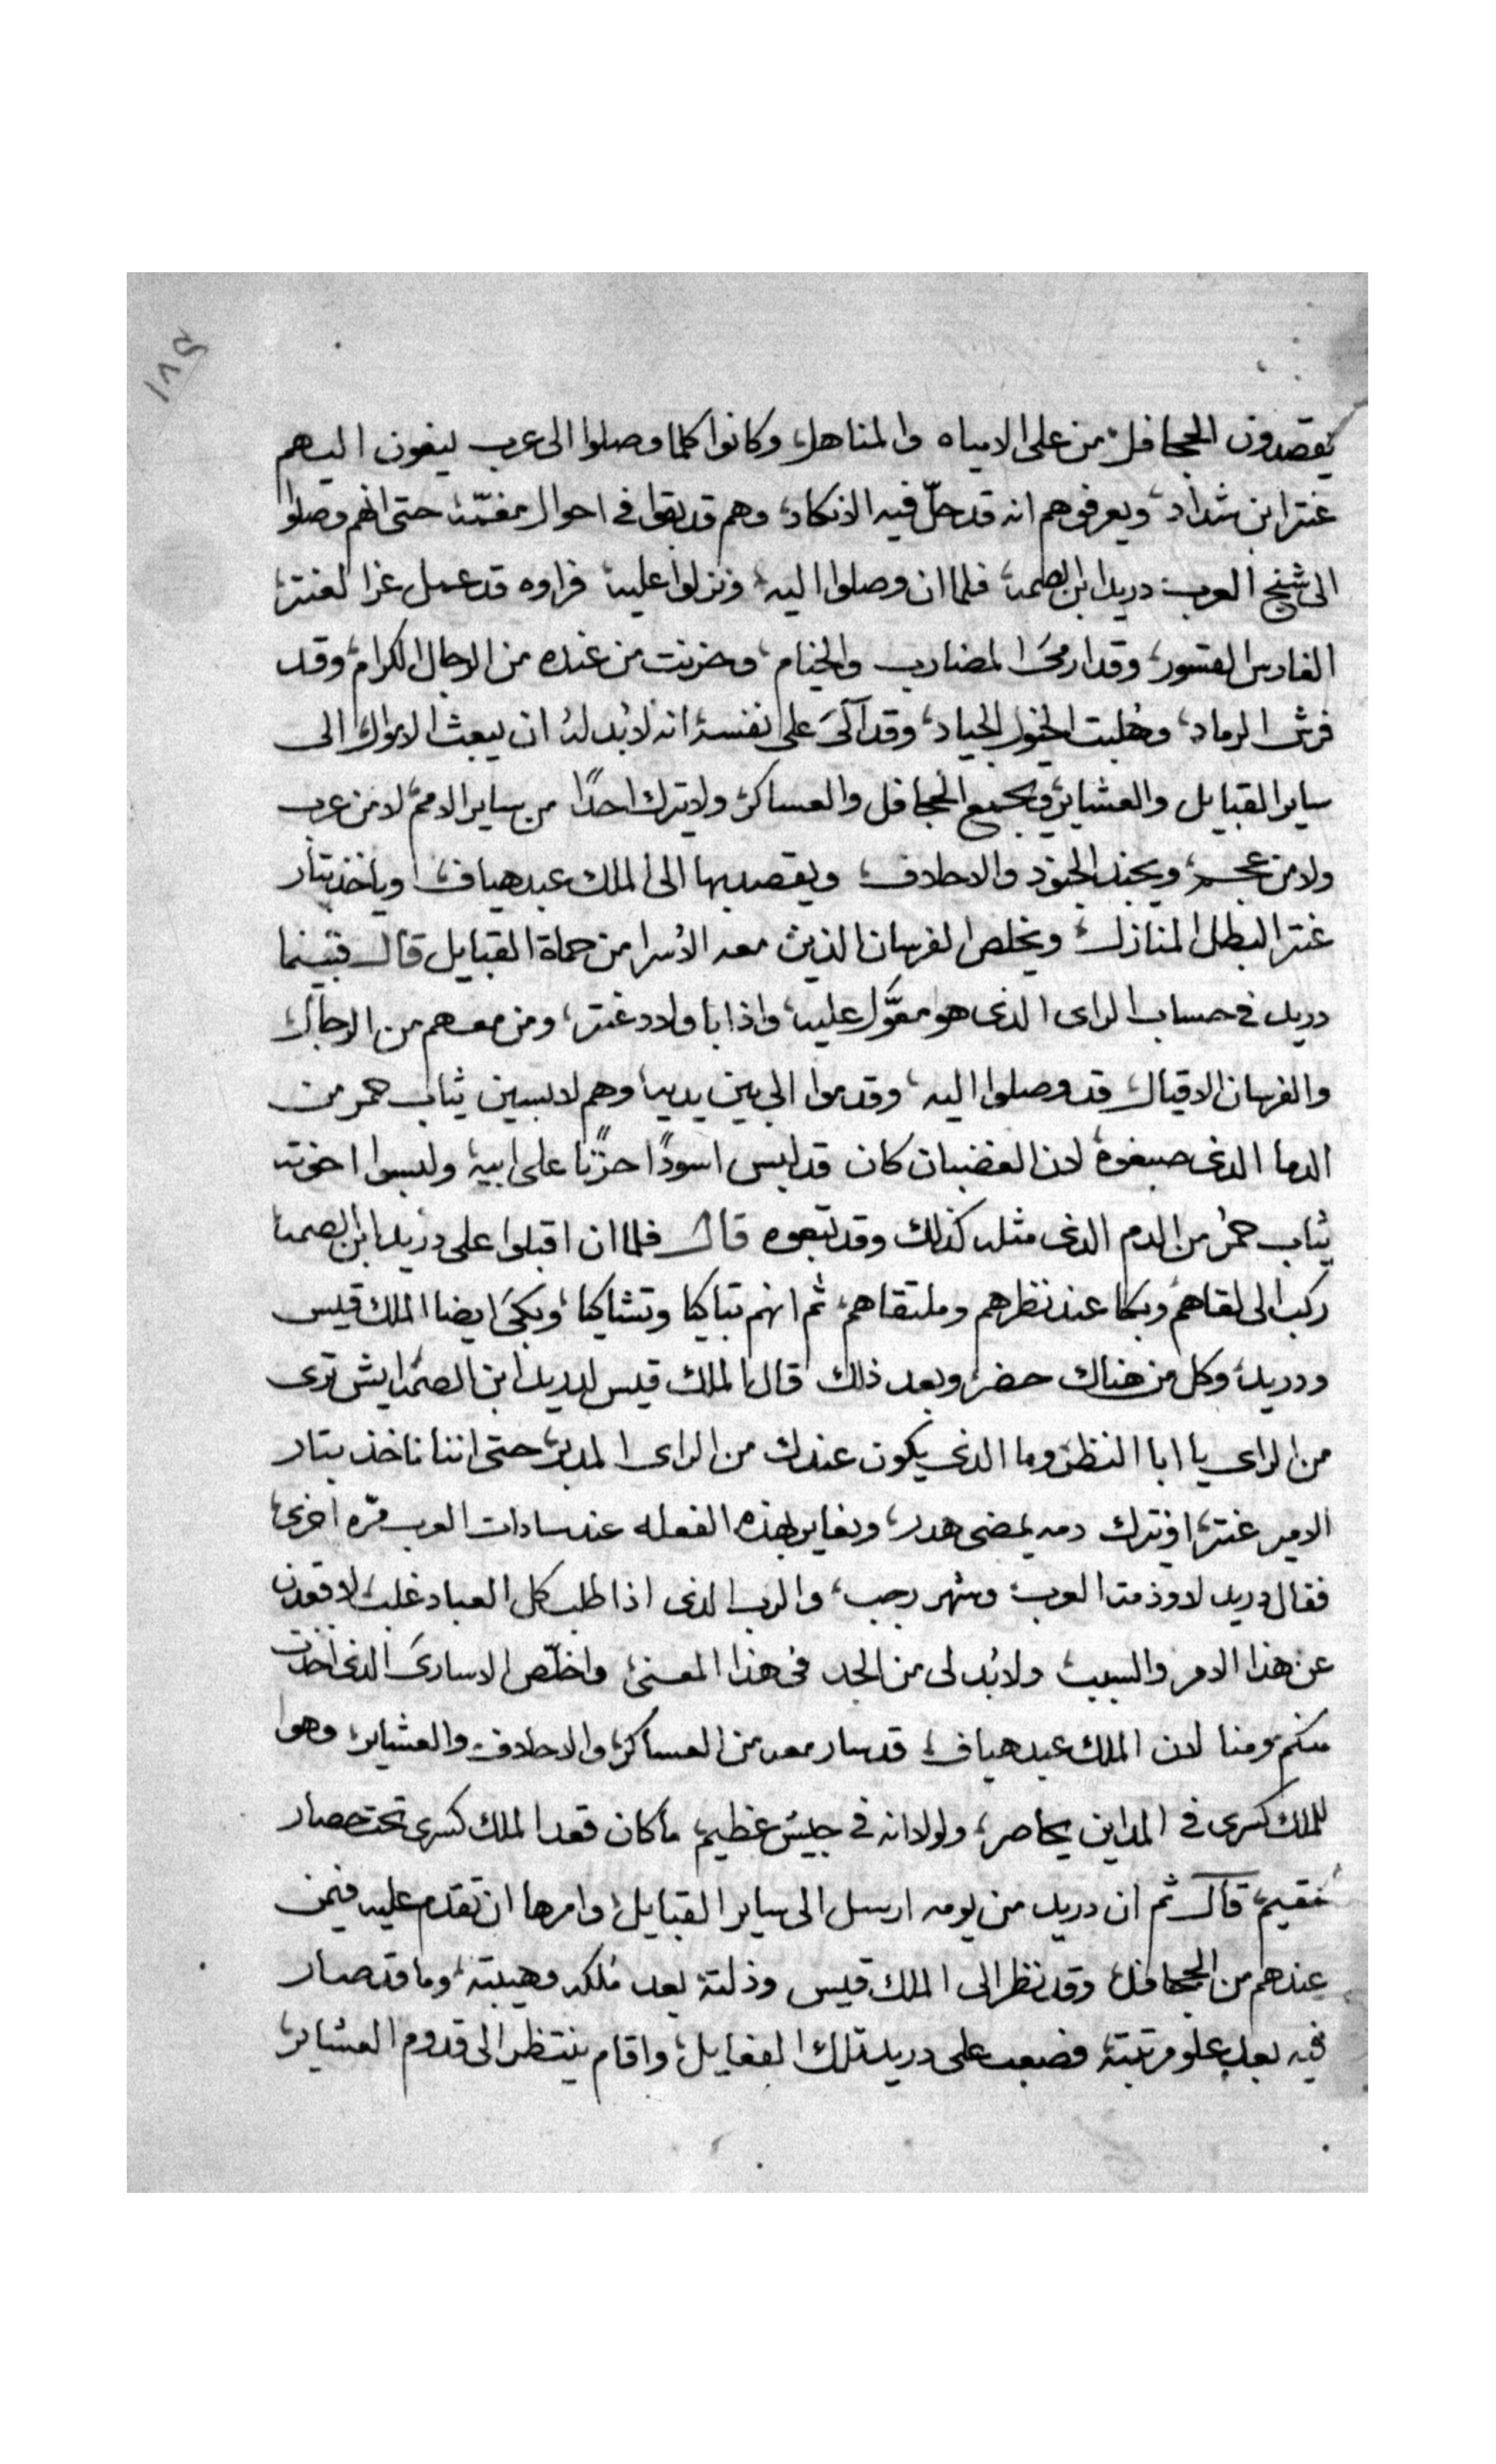 ١٧٥
يقصدون الجحافل، من على الامياه والمناهل، وكانوا كلما وصلوا الى عرب ينعون اليهم
عنتر ابن شداد، ويعرفوهم انه قد حلّ فيه الانكاد، وهم قد بقوا في احوال مغمّة، حتى انهم وصلوا
الى شيخ العرب دريد ابن الصمة، فلما ان وصلوا اليه، ونزلوا عليه، فراوه قد عمل عزا لعنتر،
الفارس القسور، وقد ارمى المضارب والخيام، وحزنت من عنده من الرجال الكرام، وقد
فرش الرماد، وهُلبت الخيول الجياد، وقد آلىَ على نفسه انه لا بُد لهُ ان يبعث الاموال الى
ساير القبايل والعشاير، ويجمع الجحافل والعساكر، ولا يترك احدًا من ساير الامم، لا من عرب
ولا من عجم، ويجند الجنود والاحلاف، ويقصد بها الى الملك عبد هياف، وياخذ بتار
عنتر البطل المنازل، ويخلص الفرسان الذين معه الاُسرا من حماة القبايل قال فبينما
دريد في حساب الراى الذى هو معوَّل عليه، واذا باولاد عنتر، ومن معهم من الرجال
والفرسان الاقيال، قد وصلوا اليه، وقدموا الى بين يديه، وهم لابسين ثياب حمر من
الدما الذى صبغوه، لان الغضبان كان قد لبس اسودًا حزنًا على ابيه، ولبسوا اخوته
ثياب حمُر من الدم الذى مثله كذلك وقد تبعوه قال فلما ان اقبلوا على دريد ابن الصمة
ركب الى لقاهم، وبكا عند نظرهم وملتقاهم، ثم انهم تباكيا وتشاكيا، وبكىَ ايضا الملك قيس
ودريد، وكل من هناك حضر، وبعد ذلك قال الملك قيس لدريد ابن الصمّه ايش ترى
من الراى يا ابا النظر، وما الذى يكون عندك من الراى المدبر، حتى اننا ناخذ بتار
الامير عنتر، او نترك دمه يمضى هدر، ونعاير بهذه الفعله عند سادات العرب مرّه اخرى،
فقال دريد لا وذمة العرب، وشهر رجب، والرب الذى اذا طلب كل العباد غلب، لا قعدت
عن هذا الامر والسبب، ولا بُد لى من الجد فى هذا المعنى، واخلّص الاسارىَ الذى اخذت
منكم ومنا لان الملك عبد هياف، قد سار معه من العساكر، والاحلاف والعشاير، وهوا
للملك كسرى في المداين يحاصر، ولولا انه في جيش عظيم، ما كان قعد الملك كسرى تحت حصار
مقيم، قال ثم ان دريد من يومه ارسل الى ساير القبايل، وامرها ان تقدم عليه فيمن
عندهم من الجحافل، وقد نظر الى الملك قيس وذلته بعد مُلكه وهيبته، وما قد صار
فيه بعد علو مرتبته، فصعب على دريد تلك الفعايل، واقام ينتظر الى قدوم العشاير،